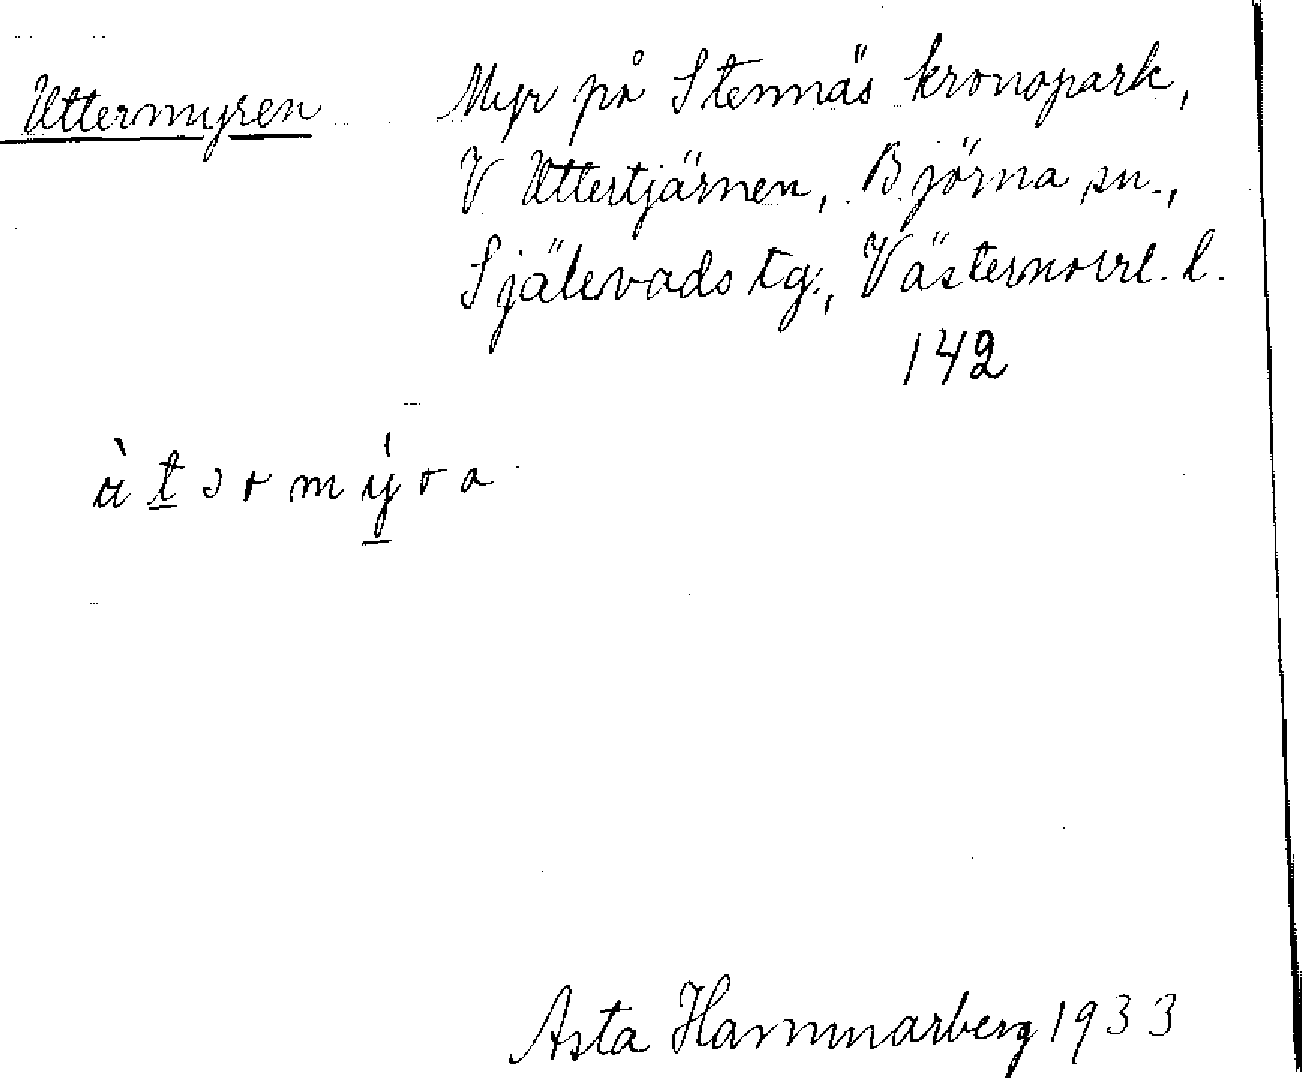 Uttermyren Myr på Stennäs kronopark,
V Uttertjärnen, Björna sn.,
Själevads tg., Västernorrl. l.
142
ù t ɔ r m ý r a
Asta Hammarberg 1933